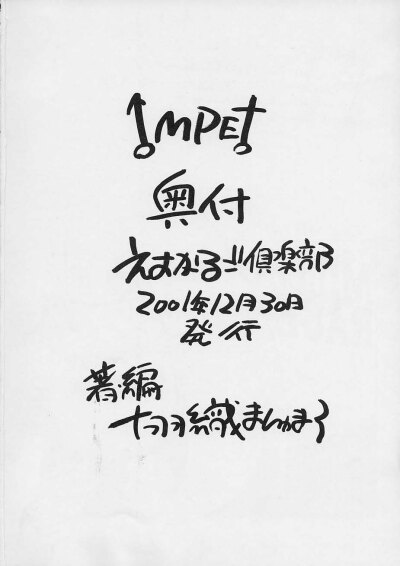 IMPET
奥付
えすかるご倶楽部
2001年12月30日
発行
著・編
十羽織ましゅまろ